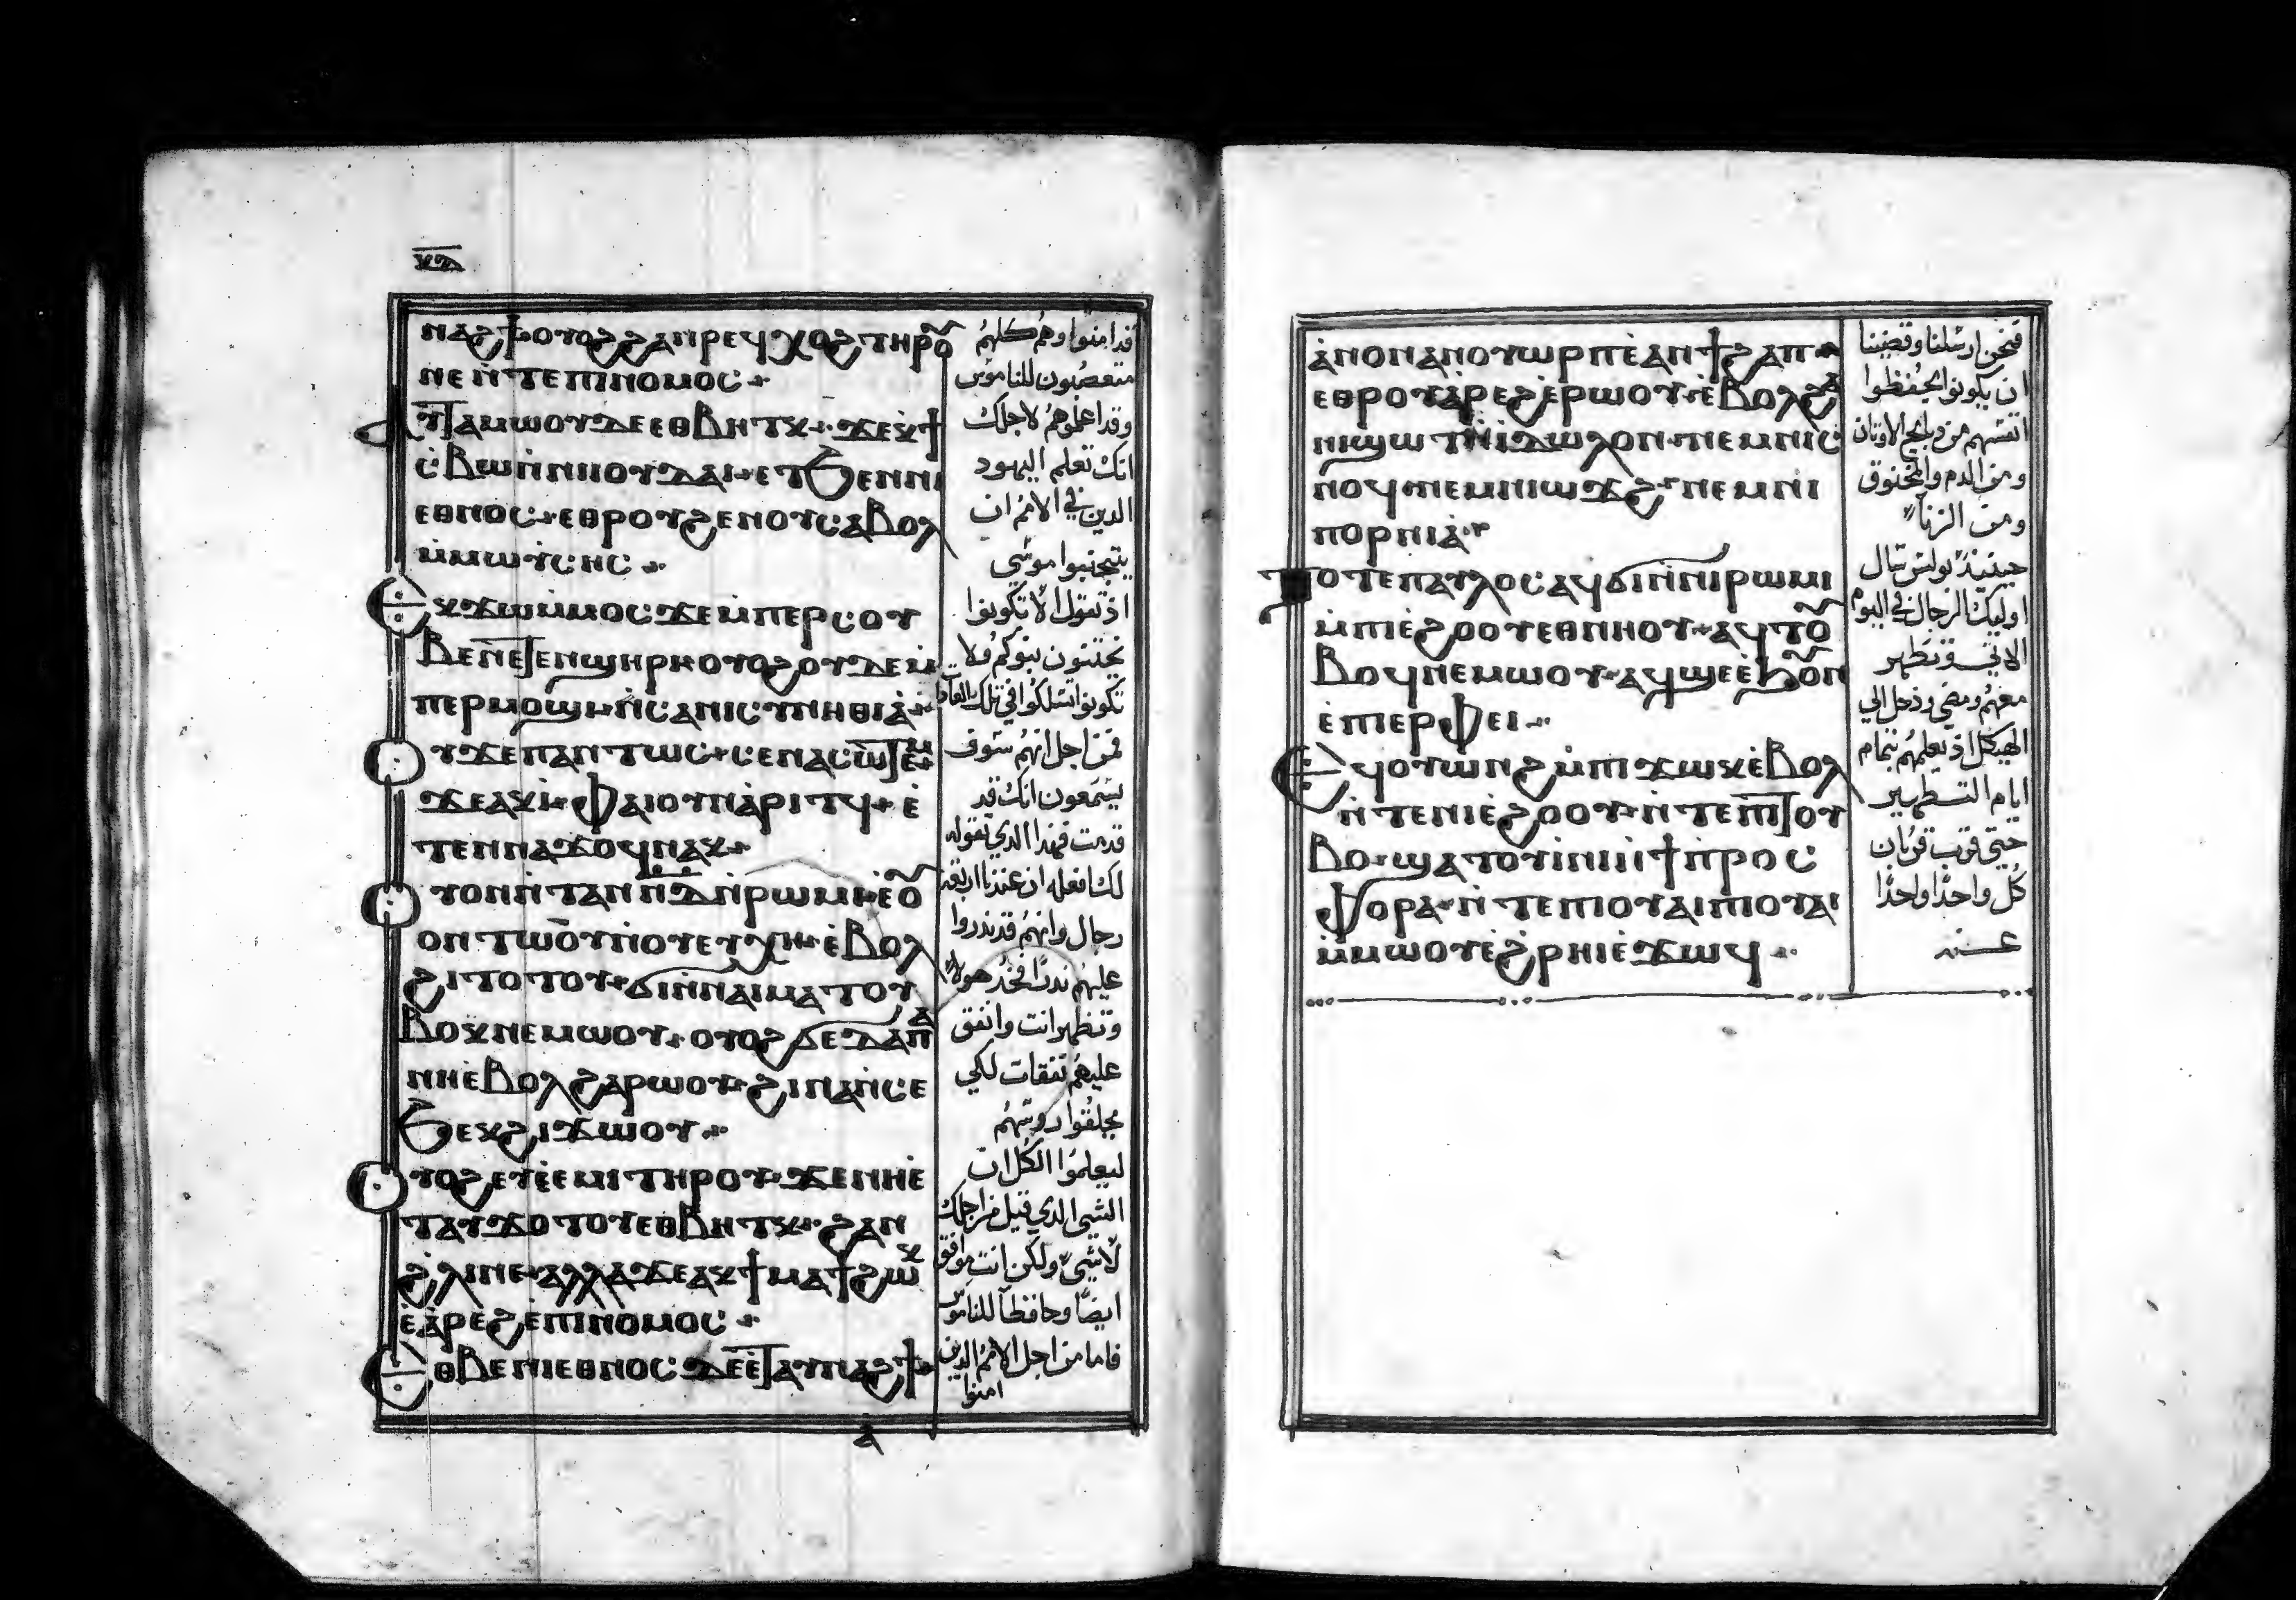 ⲛⲁϩϯⲟⲩⲟϩϩⲁⲛⲣⲉϥⲭⲟϩⲧⲏⲣⲟⲩ
ⲛⲉⲛ̇ⲧⲉⲡⲓⲛⲟⲙⲟⲥ
ⲩⲧⲁⲙⲱⲟⲩⲇⲉⲉⲑⲃⲏⲧⲕ ϫⲉⲕϯ
ⲥ̇ⲃⲱⲛ̇ⲛⲓⲓⲟⲩⲇⲁⲓ ⲉⲧϧⲉⲛⲛⲓ
ⲉⲑⲛⲟⲥ ⲉⲑⲣⲟⲩϩⲉⲛⲟⲩⲥⲁⲃⲟⲗ
ⲙ̇ⲙⲱⲩⲥⲏⲥ
Ⲉⲕϫⲱⲙ̇ⲙⲟⲥϫⲉⲙ̇ⲡⲉⲣⲥⲟⲩ
ⲃⲉⲛⲉⲧⲉⲛϣⲏⲣⲓⲟⲩⲟϩⲟⲩⲇⲉⲙ̇
ⲡⲉⲣⲙⲟϣⲓ ⲛ̇ⲥⲁⲛⲓⲥⲩⲛⲏⲑⲓⲁ̇
Ⲟⲩϫⲉⲡⲁⲛⲧⲱⲥ ⲥⲉⲛⲁⲥⲱⲧⲉⲙ
ϫⲉⲁⲕⲓ̇ ⲫⲁⲓⲟⲩⲛⲁ̇ⲣⲓⲧϥ ⲉ̇
ⲧⲉⲛⲛⲁϫⲟϥⲛⲁⲕ
Ⲟⲩⲟⲛⲛ̇ⲧⲁⲛⲛ̇ⲇ̅ⲛ̇ⲣⲱⲙⲓ ⲉ̇ⲟⲩ
ⲟⲛⲧⲱⲟⲩⲛ̇ⲟⲩⲉⲩⲭⲏ ⲉ̇ⲃⲟⲗ
ϩⲓⲧⲟⲧⲟⲩ ϭⲓⲛ̇ⲛⲁⲓⲙⲁⲧⲟⲩ
ⲃⲟⲕⲛⲉⲙⲱⲟⲩ ⲟⲩⲟϩϭⲉⲇⲁⲡⲁ
ⲛⲏⲉ̇ⲃⲟⲗϩⲁⲣⲱⲟⲩ ϩⲓⲛⲁⲛ̇ⲥⲉ
ϧⲉⲕϩⲓϫⲱⲟⲩ
Ⲟⲩⲟϩⲉⲩⲉ̇ⲉⲙⲓⲧⲏⲣⲟⲩ ϫⲉⲛⲏⲉ̇
ⲧⲁⲩϫⲟⲧⲟⲩⲉⲑⲃⲏⲧⲕ ϩⲁⲛ
ϩ̇ⲗⲓⲛⲉ ⲁⲗⲗⲁϫⲉⲁⲕϯⲙⲁϯϩⲱⲕ
ⲉ̇ⲁ̇ⲣⲉϩⲉ̇ⲡⲓⲛⲟⲙⲟⲥ
Ⲉⲑⲃⲉⲛⲓⲉⲑⲛⲟⲥⲇⲉⲉ̇ⲧⲁⲩⲛⲁϩϯ
قد امنوا وهم كلهم
متعصبون للناموس
وقد اعلموهم لاجلك
انك تعلم اليهود
الدين في الامم ان
يتجنبوا موسي
اذ تقول الا تكونوا
تختنون بنوكم ولا
تكونوا تسلكوا في تلك العادات
فمن اجل انهم سوف
يسمعون انك قد
قدمت فهذا الدي نقوله
لك افعله ان عندنا اربعة
رجال وانهم قد ندروا
عليهم ندرًا فخد هولاء
وتطهر انت وانفق
عليهم نفقات لكي
يحلقوا روسهم
ليعلموا الكل ان
الشي الدي قيل من اجلك
لاشي ولكن انت موافق
ايضًا وحافظًا للناموس
فاما من اجل الامم الدين
امنوا
ⲁ̇ⲛⲟⲛⲁⲛⲟⲩⲱⲣⲡⲉ̇ⲁⲛϯϩⲁⲡ
ⲉⲑⲣⲟⲩⲁ̇ⲣⲉϩⲉ̇ⲣⲱⲟⲩ ⲉ̇ⲃⲟⲗϩⲁ
ⲛⲓϣⲱⲧⲛ̇ⲓⲇⲱⲗⲟⲛ ⲛⲉⲙⲛⲓⲥ̇
ⲛⲟϥ ⲛⲉⲙⲛⲓⲱϫϩ ⲛⲉⲙⲛⲓ
ⲡⲟⲣⲛⲓⲁ̇
Ⲧⲟⲧⲉⲡⲁⲩⲗⲟⲥⲁϥϭⲓⲛ̇ⲛⲓⲣⲱⲙⲓ
ⲙ̇ⲡⲓⲉ̇ϩⲟⲟⲩⲉⲑⲛⲏⲟⲩ ⲁϥⲧⲟⲩ
ⲃⲟϥⲛⲉⲙⲱⲟⲩ ⲁϥϣⲉⲉ̇ϧⲟⲩⲛ
ⲉ̇ⲡⲓⲉⲣⲫⲉⲓ
Ⲉϥⲟⲩⲱⲛϩⲙ̇ⲡⲓϫⲱⲕⲉ̇ⲃⲟⲗ
ⲛ̇ⲧⲉⲛⲓⲉ̇ϩⲟⲟⲩ ⲛ̇ⲧⲉⲡⲧⲟⲩ
ⲃⲟ ϣⲁⲧⲟⲩⲓ̇ⲛⲓⲛ̇ϯⲡ̇ⲣⲟⲥ
ⲫⲟⲣⲁ ⲛ̇ⲧⲉⲡⲓⲟⲩⲁⲓⲡⲓⲟⲩⲁⲓ
ⲙ̇ⲙⲱⲟⲩⲉ̇ϩ̇ⲣⲏⲓⲉ̇ϫⲱϥ
فنحن ارسلنا وقضينا
ان يكونوا يحفظوا
انفسهم من دبايح الاوتان
ومن الدم والمخنوق
ومن الزنا
حينيذ بولس تال
اوليك الرجال في اليوم
الاتي وتطهر
معهم ومضي ودخل الي
الهيكل اذ يعلمهم بتمام
ايام التطهير
حتي قرب قربان
كل واحدًا واحدًا
عنه